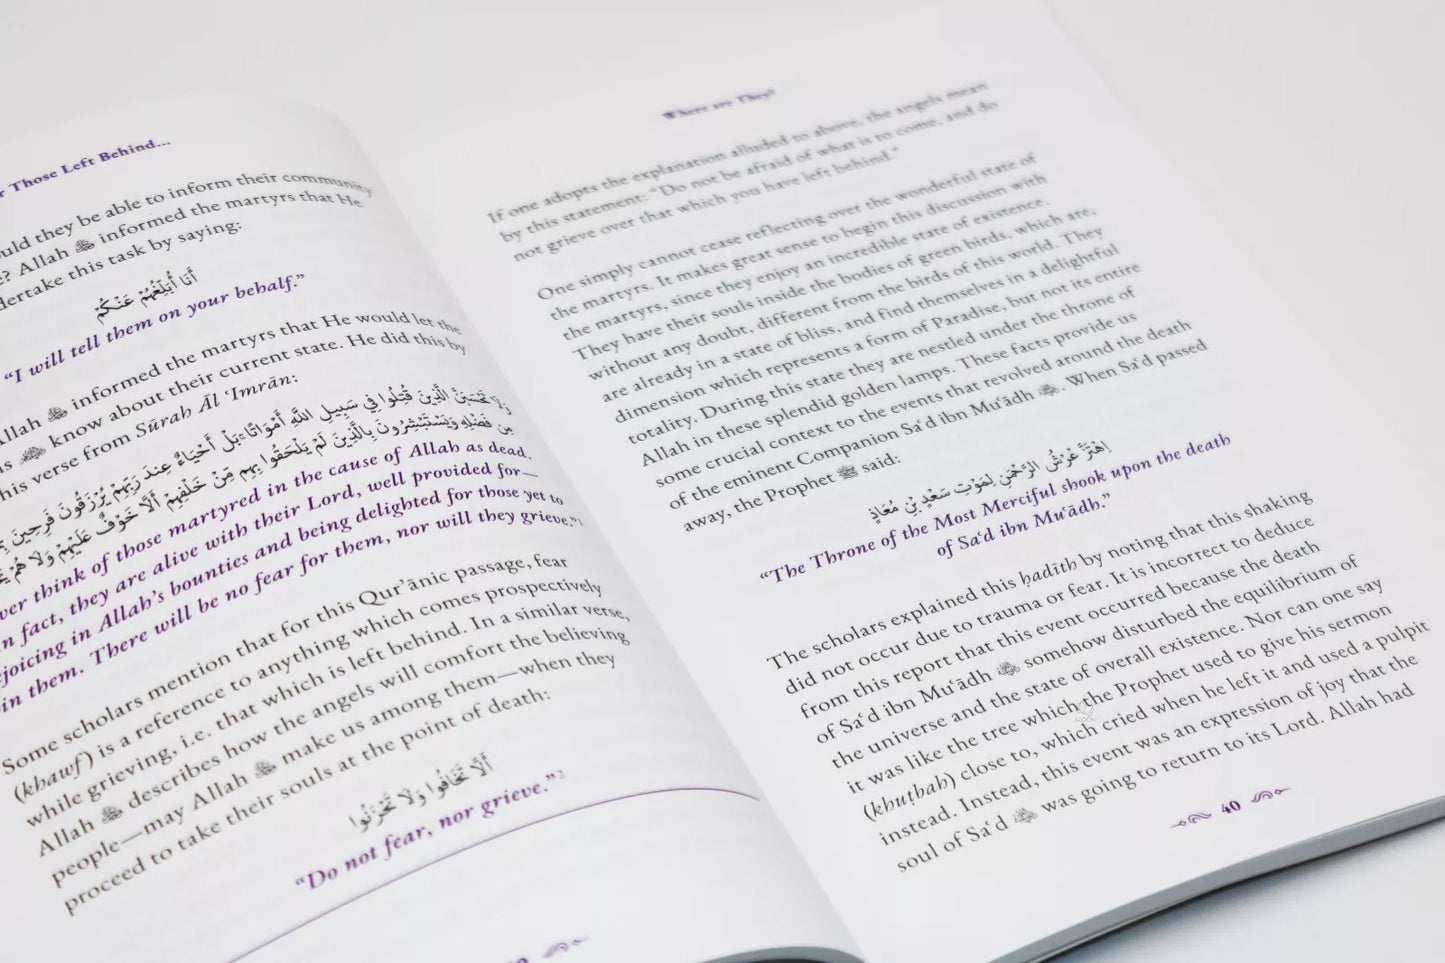 r Those Left Behind...
uld they be able to inform their community
e? Allah ﷻ informed the martyrs that He
dertake this task by saying:
أَنَا أُبَلِّغُهُمْ عَنْكُمْ
“I will tell them on your behalf.”
Allah ﷻ informed the martyrs that He would let the
know about their current state. He did this by
his verse from Sūrah Āl ʿImrān:
وَلَا تَحْسَبَنَّ الَّذِينَ قُتِلُوا فِي سَبِيلِ اللَّهِ أَمْوَاتًا بَلْ أَحْيَاءٌ عِندَ رَبِّهِمْ يُرْزَقُونَ فَرِحِينَ
مِن فَضْلِهِ وَيَسْتَبْشِرُونَ بِالَّذِينَ لَمْ يَلْحَقُوا بِهِم مِّنْ خَلْفِهِمْ أَلَّا خَوْفٌ عَلَيْهِمْ وَلَا هُمْ
ver think of those martyred in the cause of Allah as dead.
n fact, they are alive with their Lord, well provided for—
ejoicing in Allah’s bounties and being delighted for those yet to
in them. There will be no fear for them, nor will they grieve.”¹
Some scholars mention that for this Qur’ānic passage, fear
(khawf) is a reference to anything which comes prospectively
while grieving, i.e. that which is left behind. In a similar verse,
Allah ﷻ describes how the angels will comfort the believing
people—may Allah ﷻ make us among them—when they
proceed to take their souls at the point of death:
أَلَّا تَخَافُوا وَلَا تَحْزَنُوا
“Do not fear, nor grieve.”²
Where are They?
If one adopts the explanation alluded to above, the angels mean
by this statement: “Do not be afraid of what is to come, and do
not grieve over that which you have left behind.”
One simply cannot cease reflecting over the wonderful state of
the martyrs. It makes great sense to begin this discussion with
the martyrs, since they enjoy an incredible state of existence.
They have their souls inside the bodies of green birds, which are,
without any doubt, different from the birds of this world. They
are already in a state of bliss, and find themselves in a delightful
dimension which represents a form of Paradise, but not its entire
totality. During this state they are nestled under the throne of
Allah in these splendid golden lamps. These facts provide us
some crucial context to the events that revolved around the death
of the eminent Companion Saʿd ibn Muʿādh. When Saʿd passed
away, the Prophet ﷺ said:
اهْتَزَّ عَرْشُ الرَّحْمَنِ لِمَوْتِ سَعْدِ بْنِ مُعَاذٍ
“The Throne of the Most Merciful shook upon the death
of Saʿd ibn Muʿādh.”
The scholars explained this ḥadīth by noting that this shaking
did not occur due to trauma or fear. It is incorrect to deduce
from this report that this event occurred because the death
of Saʿd ibn Muʿādh somehow disturbed the equilibrium of
the universe and the state of overall existence. Nor can one say
it was like the tree which the Prophet used to give his sermon
(khuṭbah) close to, which cried when he left it and used a pulpit
instead. Instead, this event was an expression of joy that the
soul of Saʿd was going to return to its Lord. Allah had
40